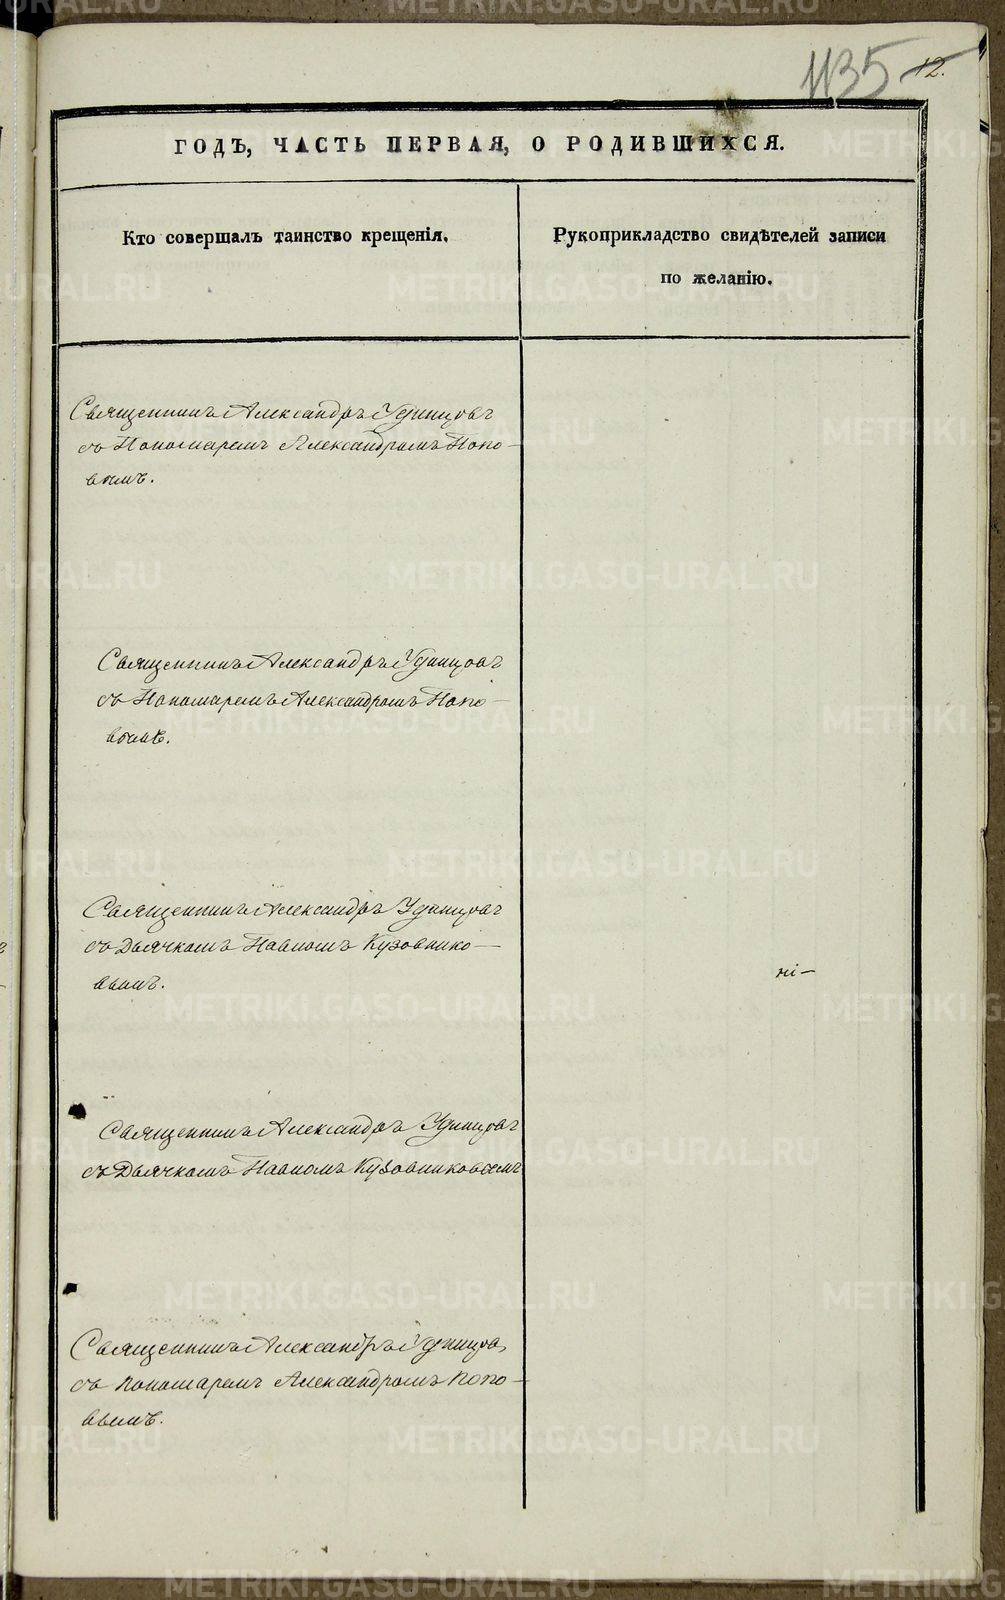 1135 12.
ГОДЪ, ЧАСТЬ ПЕРВАЯ, О РОДИВШИХСЯ.
Кто совершалъ таинство крещенія.
Рукоприкладство свидѣтелей записи
по желанію.
Священникъ Александръ Удинцовъ
съ Пономаремъ Александромъ Попо-
вымъ.
Священникъ Александръ Удинцовъ
съ Пономаремъ Александромъ Попо-
вымъ.
Священникъ Александръ Удинцовъ
съ Дьячкомъ Павломъ Кузовнико-
вымъ.
Священникъ Александръ Удинцовъ
съ Дьячкомъ Павломъ Кузовниковымъ
Священникъ Александръ Удинцов,
съ пономаремъ Александромъ Попо-
вымъ.
METRIKI.GASO-URAL.RU